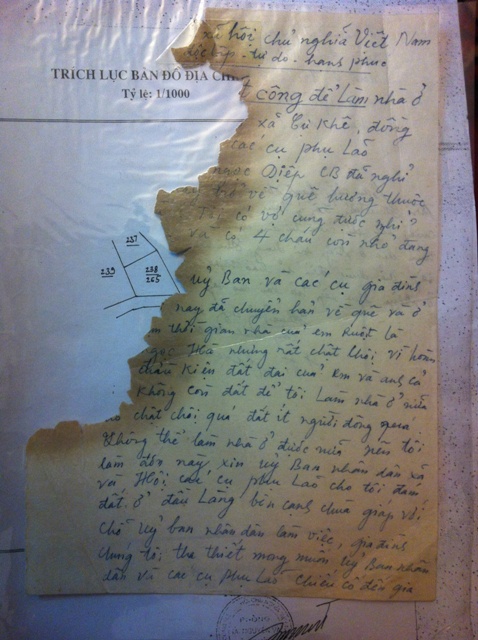 xã hội chủ nghĩa Việt Nam
độc lập - tự do - hanh phuc
TRÍCH LỤC BẢN ĐỒ ĐỊA CHÍ
Tỷ lệ: 1/1000
công để Làm nhà ở
xã Cự Khê, đồng
các cụ phụ Lão
ngọc Điệp CB đã nghỉ
về quê hương thuộc
có vợ cung được nghỉ
và có 4 cháu còn nhỏ đang
237
239
238
265
uỷ Ban và các cụ gia đình
nay đã chuyển hẳn về quê và ở
thời gian nhà của em Ruột là
Hà nhưng rất chật chội, vì hoàn
Kiện đất đai của em và anh cả
không con đất để tôi Làm nhà ở nữa
chật chội quá đất ít người đông qua
không thể làm nhà ở được nữa nên tôi
làm đơn này, xin uỷ Ban nhân dân xã
với Hội các cụ phụ Lão cho tôi
đất ở đầu Làng bên cạnh chùa giáp với
chỗ uỷ ban nhân dân làm việc, gia đình
chung tôi tha thiết mong muốn uỷ Ban nhân
dân và các cụ phụ Lão chiếu cố đến gia